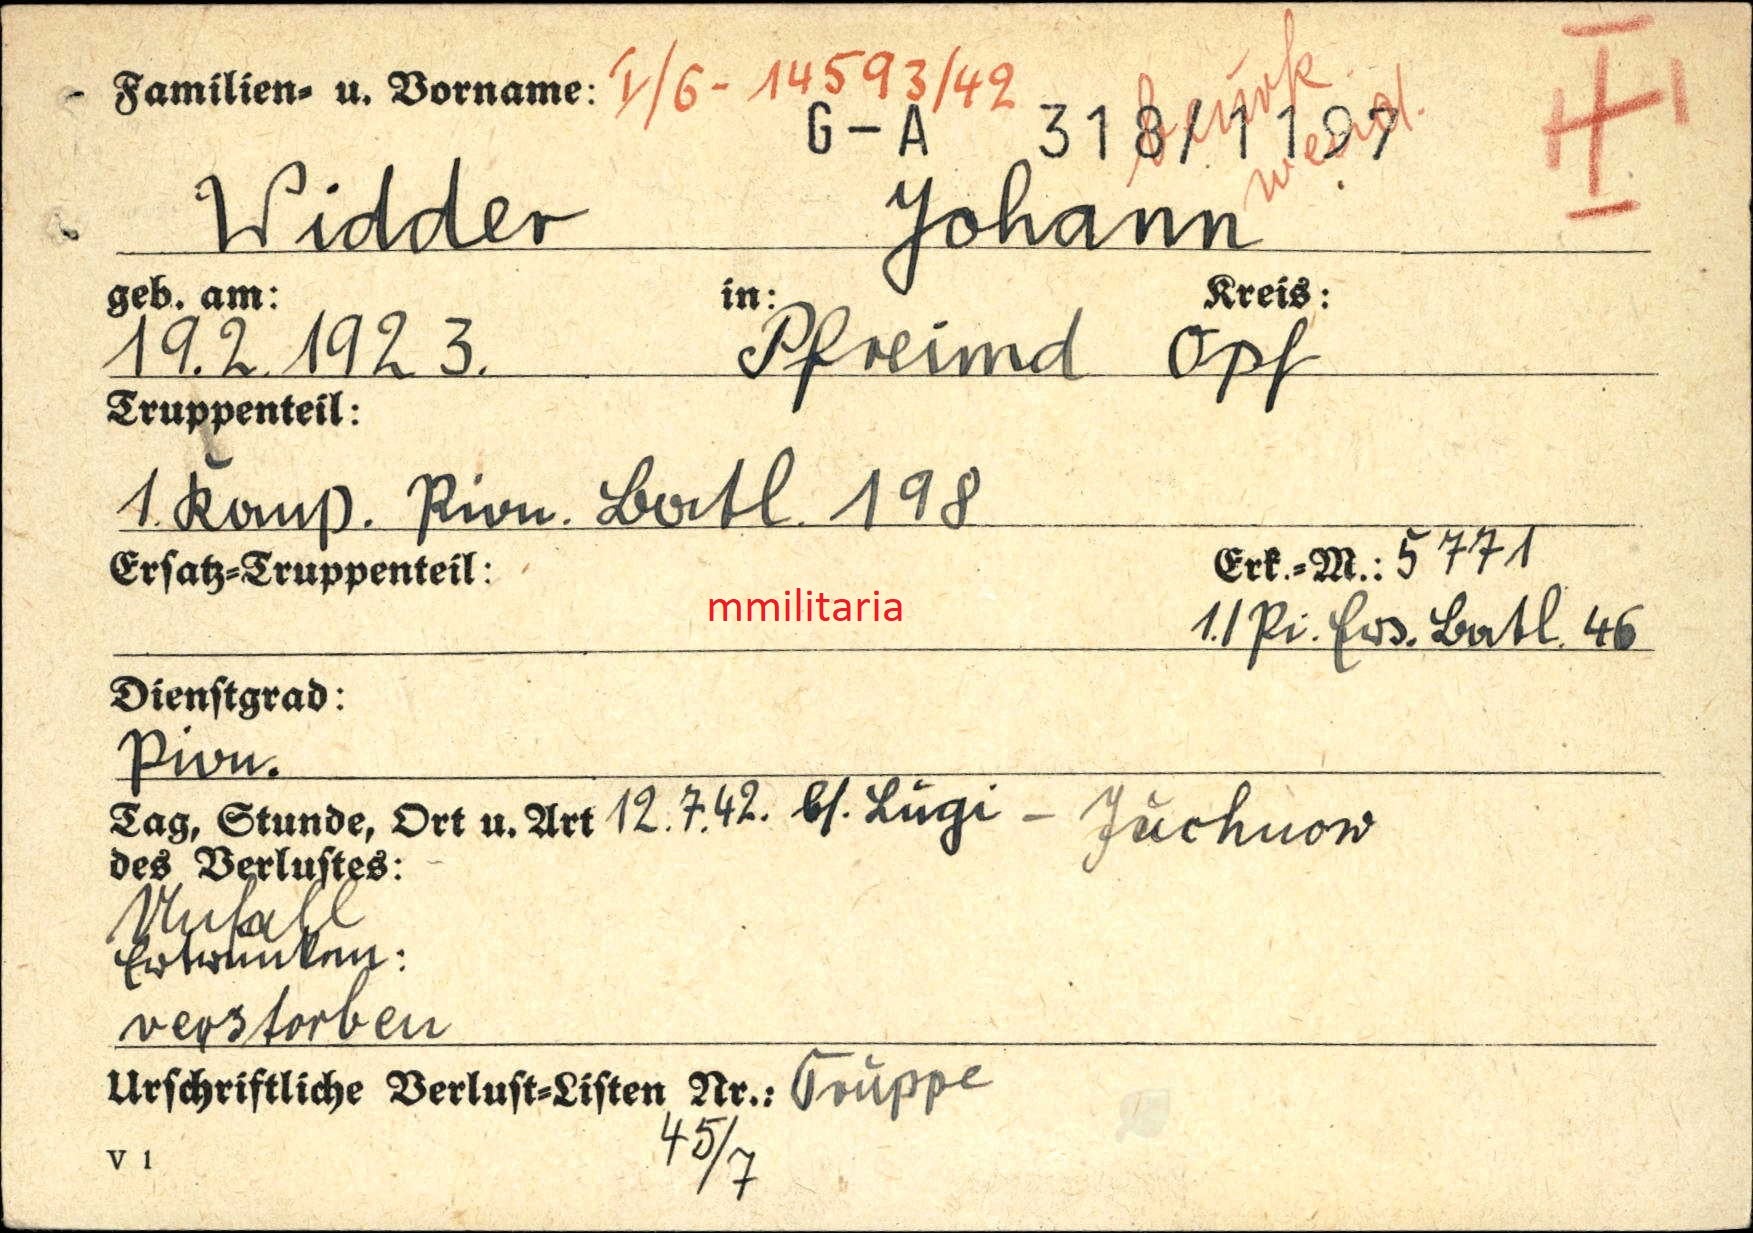 Familien- u. Vorname: I/6 - 14593/42
G-A 318/1197
Widder Johann
geb. am: in: Kreis:
19.2.1923. Pfreimd Opf
Truppenteil:
1. Komp. Pion. Batl. 198
Ersatz-Truppenteil: Erk.-M.: 5771
1./Pi. Ers. Batl. 46
mmilitaria
Dienstgrad:
Pion.
Tag, Stunde, Ort u. Art 12.7.42. bf. Lugi - Juchnow
des Verlustes:
Unfall
Ertrunken:
verstorben
Urschriftliche Verlust-Listen Nr.: Truppe
45/7
V 1